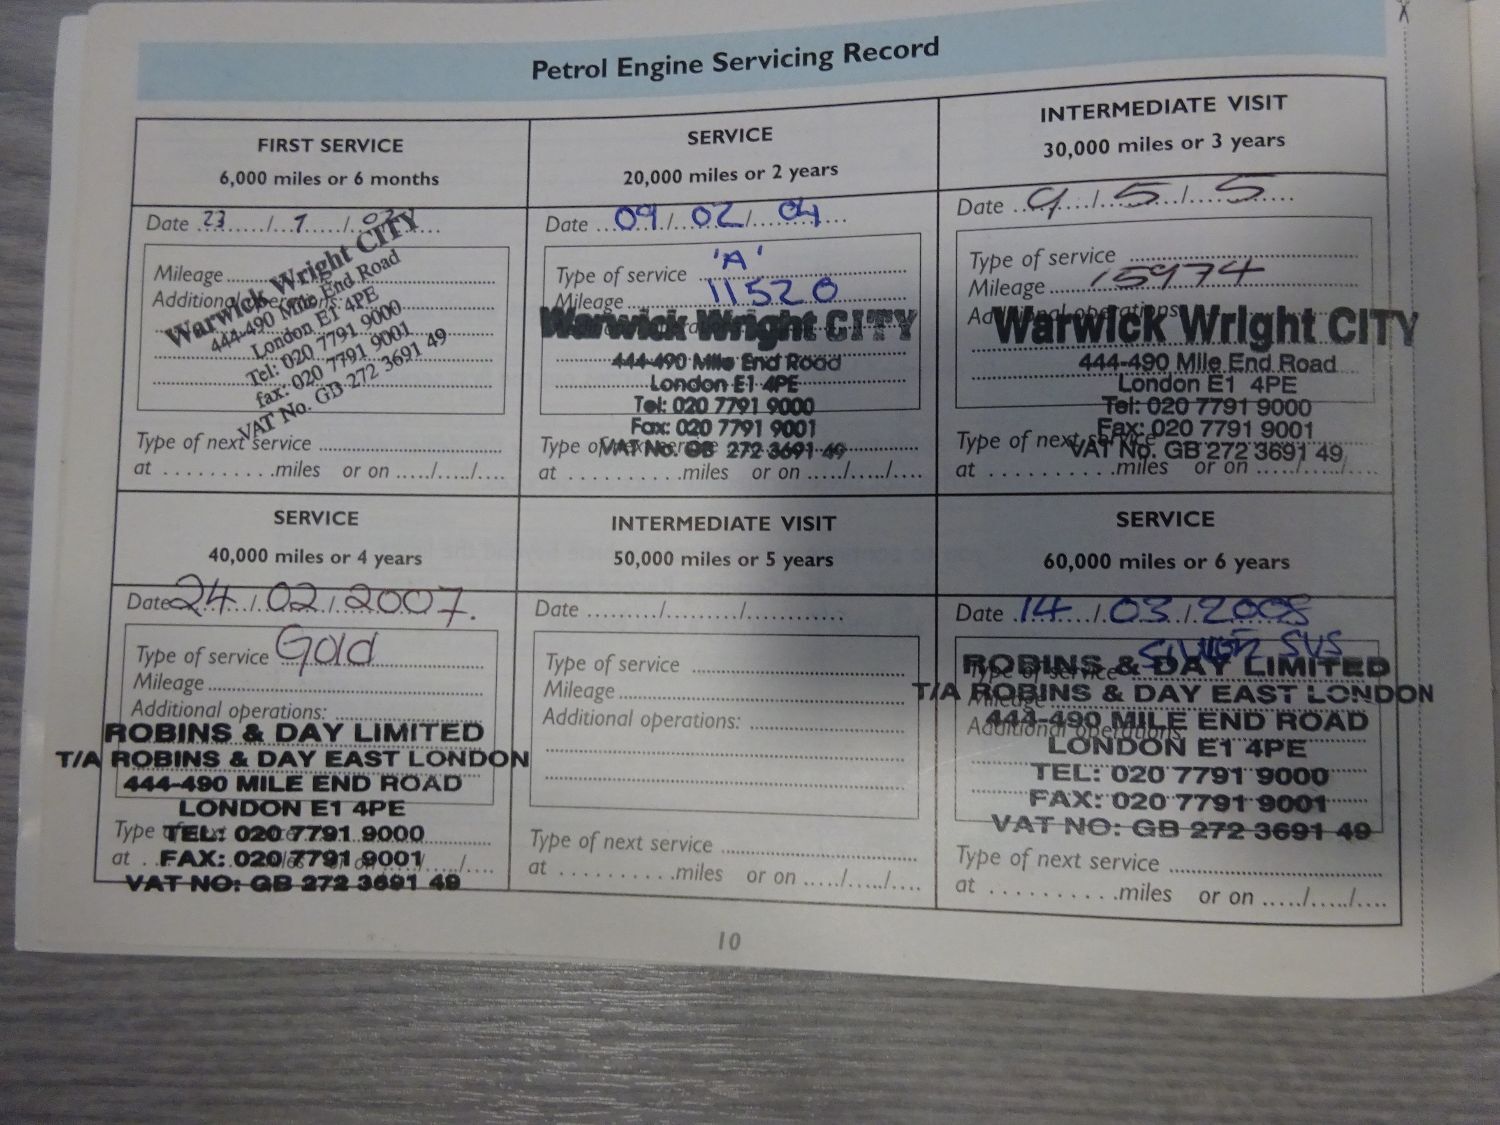 Petrol Engine Servicing Record
FIRST SERVICE
6,000 miles or 6 months
Date 23/7/02
Mileage
Additional operations:
Warwick Wright CITY
444-490 Mile End Road
London E1 4PE
Tel: 020 7791 9000
fax: 020 7791 9001
VAT No. GB 272 3691 49
Type of next service
at ..........miles or on ...../...../....
SERVICE
20,000 miles or 2 years
Date 09/02/04
Type of service 'A'
Mileage 11520
Warwick Wright CITY
444-490 Mile End Road
London E1 4PE
Tel: 020 7791 9000
Fax: 020 7791 9001
Type of next service
VAT No. GB 272 3691 49
at ..........miles or on ...../...../....
INTERMEDIATE VISIT
30,000 miles or 3 years
Date 9/5/5
Type of service
Mileage 15974
Additional operations
Warwick Wright CITY
444-490 Mile End Road
London E1 4PE
Tel: 020 7791 9000
Fax: 020 7791 9001
Type of next service
VAT No. GB 272 3691 49
at ..........miles or on ...../...../....
SERVICE
40,000 miles or 4 years
Date 24/02/2007.
Type of service Gold
Mileage
Additional operations:
ROBINS & DAY LIMITED
T/A ROBINS & DAY EAST LONDON
444-490 MILE END ROAD
LONDON E1 4PE
Type
TEL: 020 7791 9000
at
FAX: 020 7791 9001
VAT NO: GB 272 3691 49
INTERMEDIATE VISIT
50,000 miles or 5 years
Date ........./........./............
Type of service
Mileage
Additional operations:
Type of next service
at ..........miles or on ...../...../....
SERVICE
60,000 miles or 6 years
Date 14/03/2008
Type of service SILVER SVS
Mileage
Additional operations
ROBINS & DAY LIMITED
T/A ROBINS & DAY EAST LONDON
444-490 MILE END ROAD
LONDON E1 4PE
TEL: 020 7791 9000
FAX: 020 7791 9001
VAT NO: GB 272 3691 49
Type of next service
at ..........miles or on ...../...../....
10